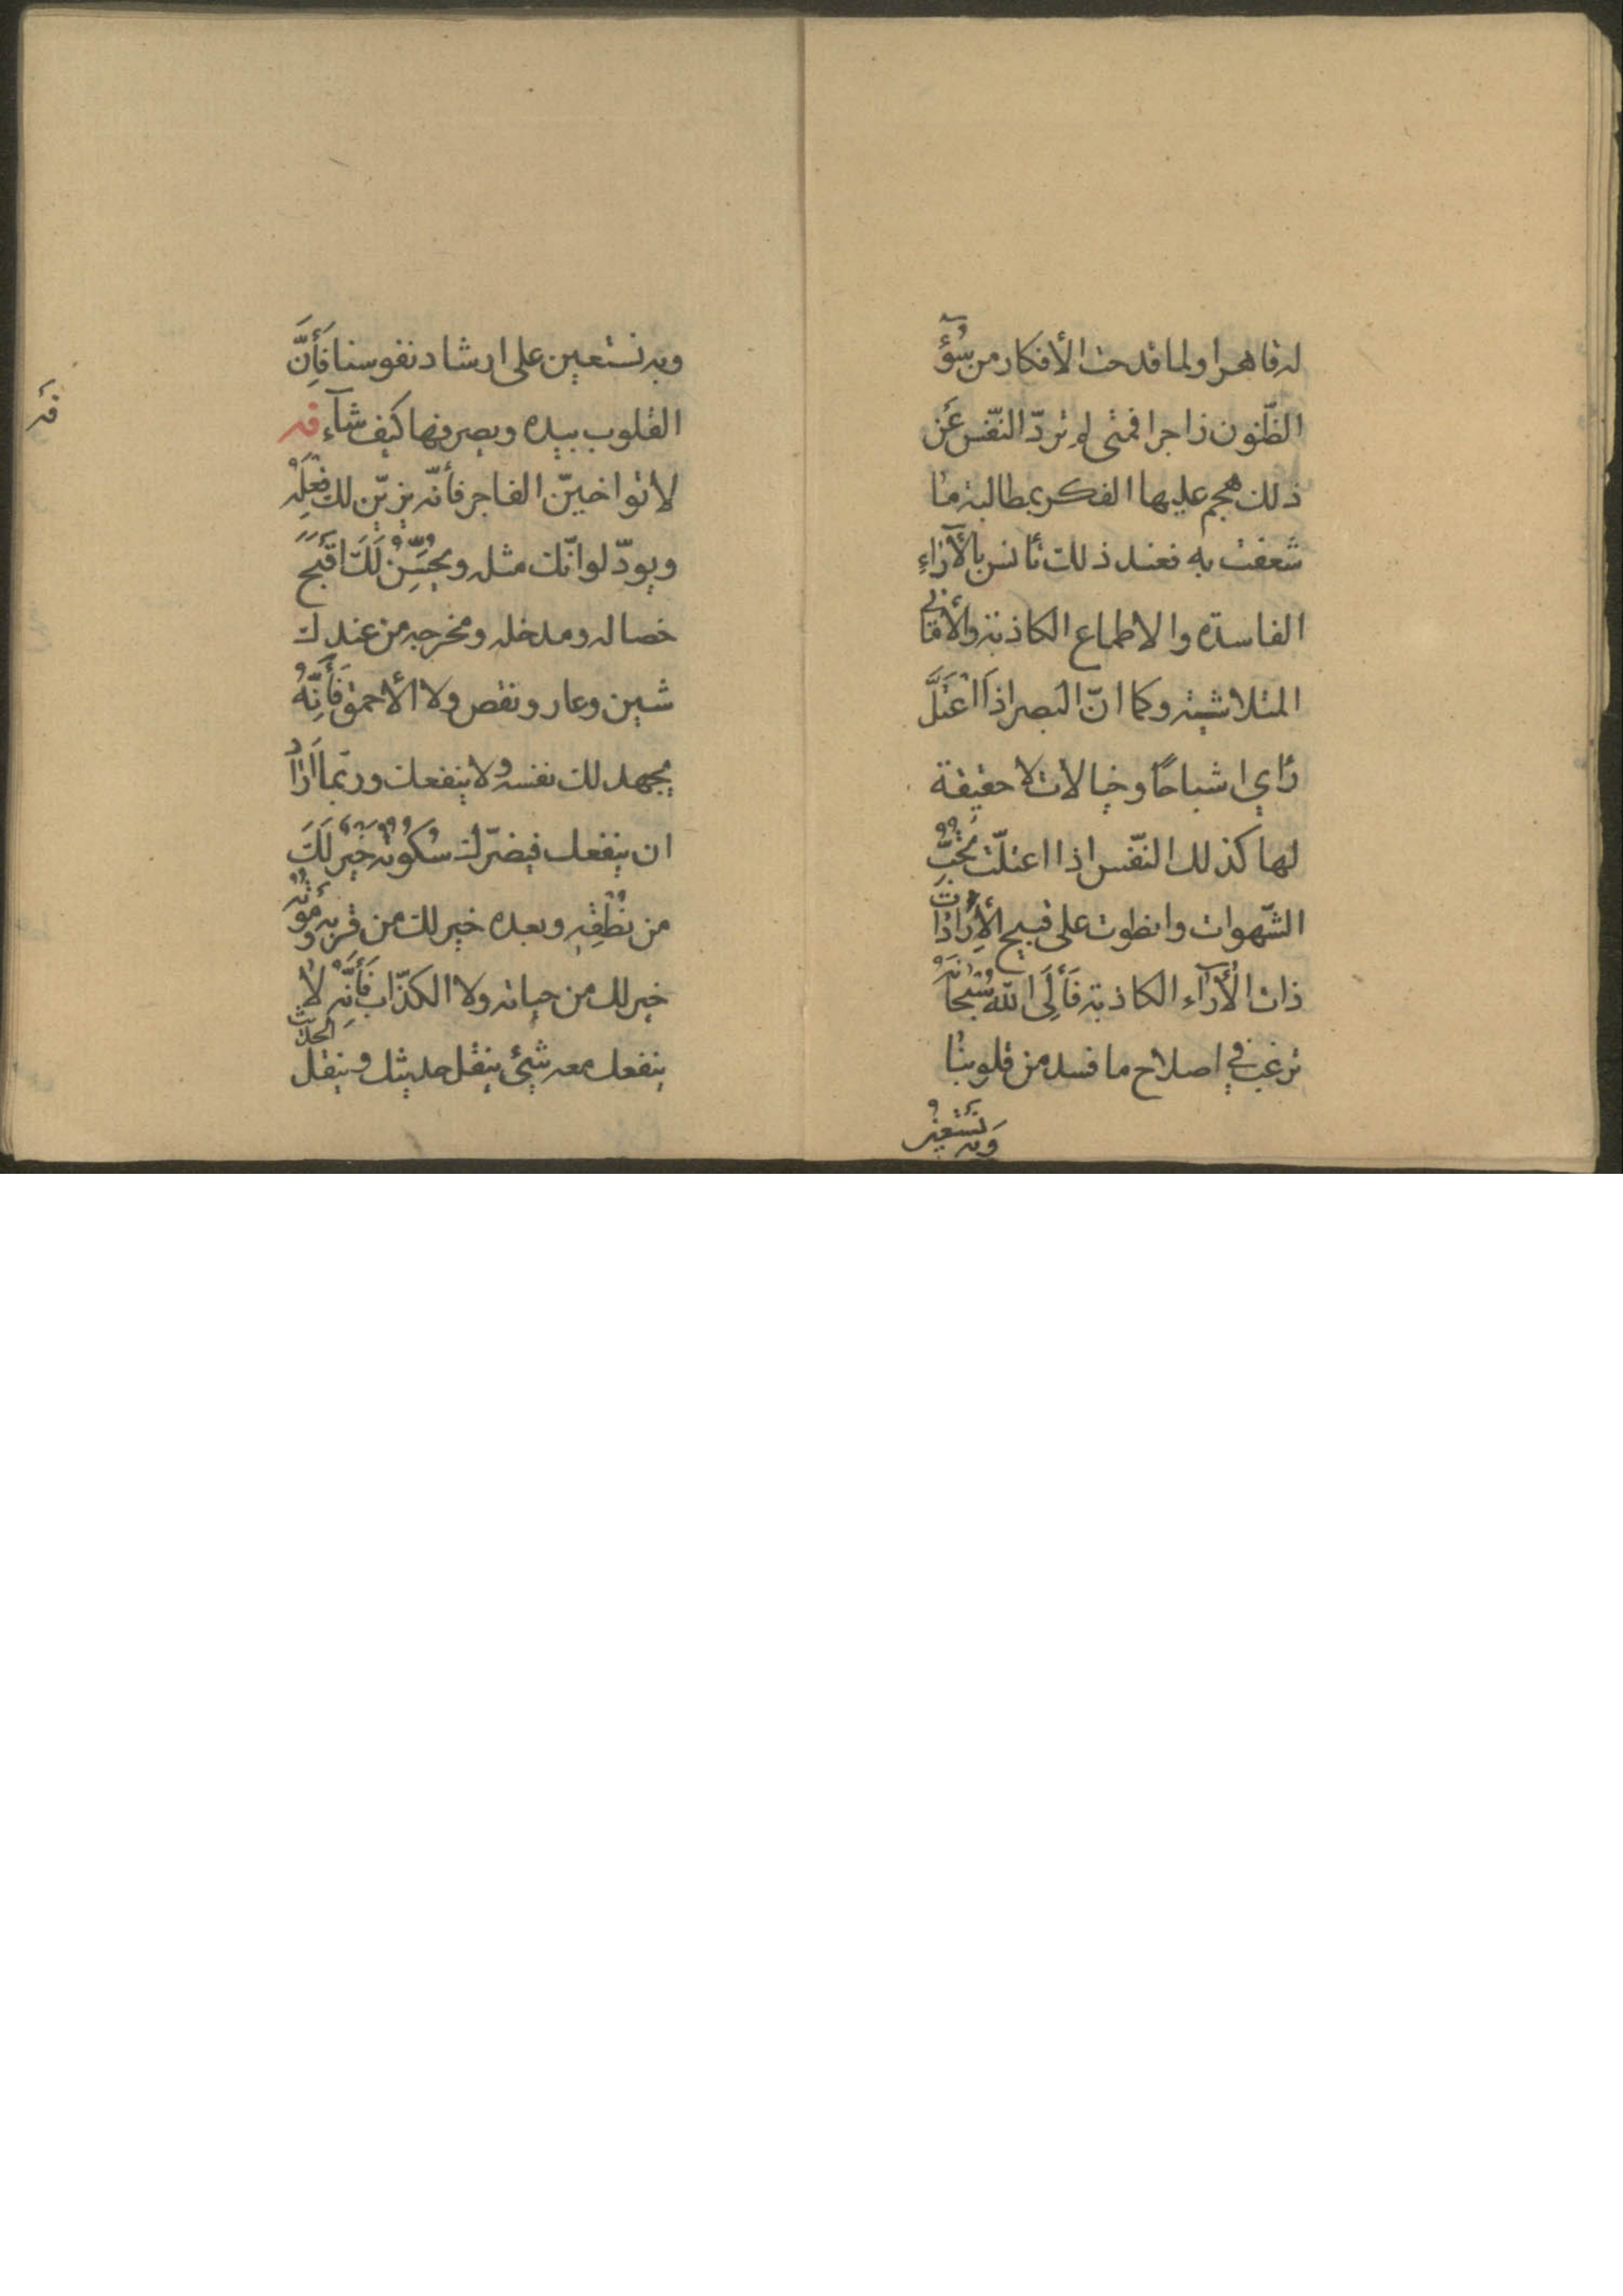 له قاهرا ولما قدحت الأفكار من سُوۤءِ
الظّنون زاجرا فمتى لم تردّ النّفس عَن
ذلك هجم عليها الفكر بمطالبة ما
شعفت به فعند ذلك تأنس بالأٓراءِ
الفاسدة والاطماع الكاذبة والأماني
المتلاشية وكما انّ البصر اذَا اعْتَلَّ
رَاي اشباحًا وخيالات لا حقيقة
لها كذلك النّفس اذا اعتلّت بحُبِّ
الشّهوات وانطوت على قبيح الأِرَادَات
ذات الأٓرآء الكاذبة فَأِلَى اللّه سُبْحَانَهُ
نرغب في اصلاح ما فسد من قلوبنا
وَبه نَسْتَعينُ
وبه نستعين على ارشاد نفوسنا فَأِنَّ
القلوب بيده ويصرفها كَيف شآءَ قه
قه
لا تواخينّ الفاجر فأنّه يزيّن لك فِعلَهُ
ويودّ لو انّك مثله ويُحَسِّنُ لَكَ اقَبحَ
خصاله ومدخله ومخرجه من عندك
شين وعار ونقص ولا الأحمق فَأِنَّهُ
يجهد لك نفسه ولا ينفعك وربّما اَرَادَ
ان ينفعك فيضرّك سُكُوتُهُ خَيرٌ لَكَ
من نُطْقِهِ وبعده خير لك من قربه وَموتُهُ
خير لك من حياته ولا الكذّاب فَأِنَّهُ لا
ينفعك معه شيئ ينقل حديثك وينقل الحديث